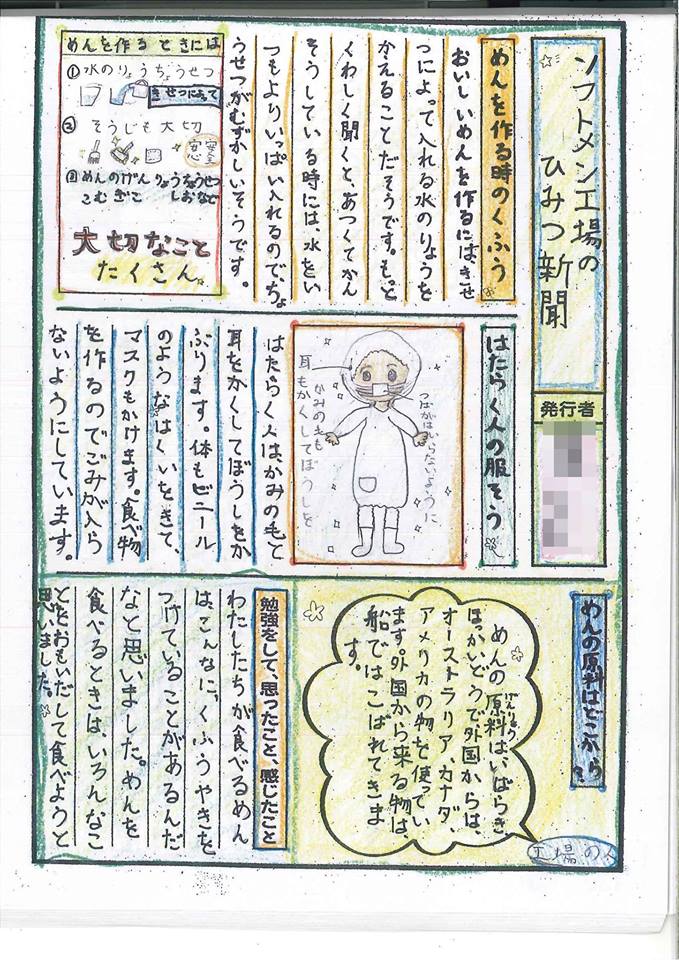 ソフトメン工場の
ひみつ新聞
発行者
めんを作る時のくふう
おいしいめんを作るには、きせ
つによって入れる水のりょうを
かえることだそうです。もっと
くわしく聞くと、あつくてかん
そうしている時には、水をい
つもよりいっぱい入れるので、ちょ
うせつがむずかしいそうです。
めんを作るときには
①水のりょうちょうせつ
きせつによって
②そうじも大切
安全
安心
③めんのげんりょうちょうせつ
こむぎこ しおなど
大切なこと
たくさん。
はたらく人の服そう
つばがはいらないように
かみのもも
耳もかくしてぼうしを
はたらく人は、かみの毛と
耳をかくしてぼうしをか
ぶります。体もビニール
のようなはくいをきて、
マスクもかけます。食べ物
を作るのでごみが入ら
ないようにしています。
めんの原料はどこから
めんの原料はいばらき
げんりょう
ほっかいどうで外国からは、
オーストラリア、カナダ、
アメリカの物を使ってい
ます。外国から来る物は、
船ではこばれてきま
す。
工場の人
勉強をして、思ったこと、感じたこと
わたしたちが食べるめん
は、こんなに、くふうやきを
つけていることがあるんだ
なと思いました。めんを
食べるときは、いろんなこ
とをおもいだして食べようと
思いました。